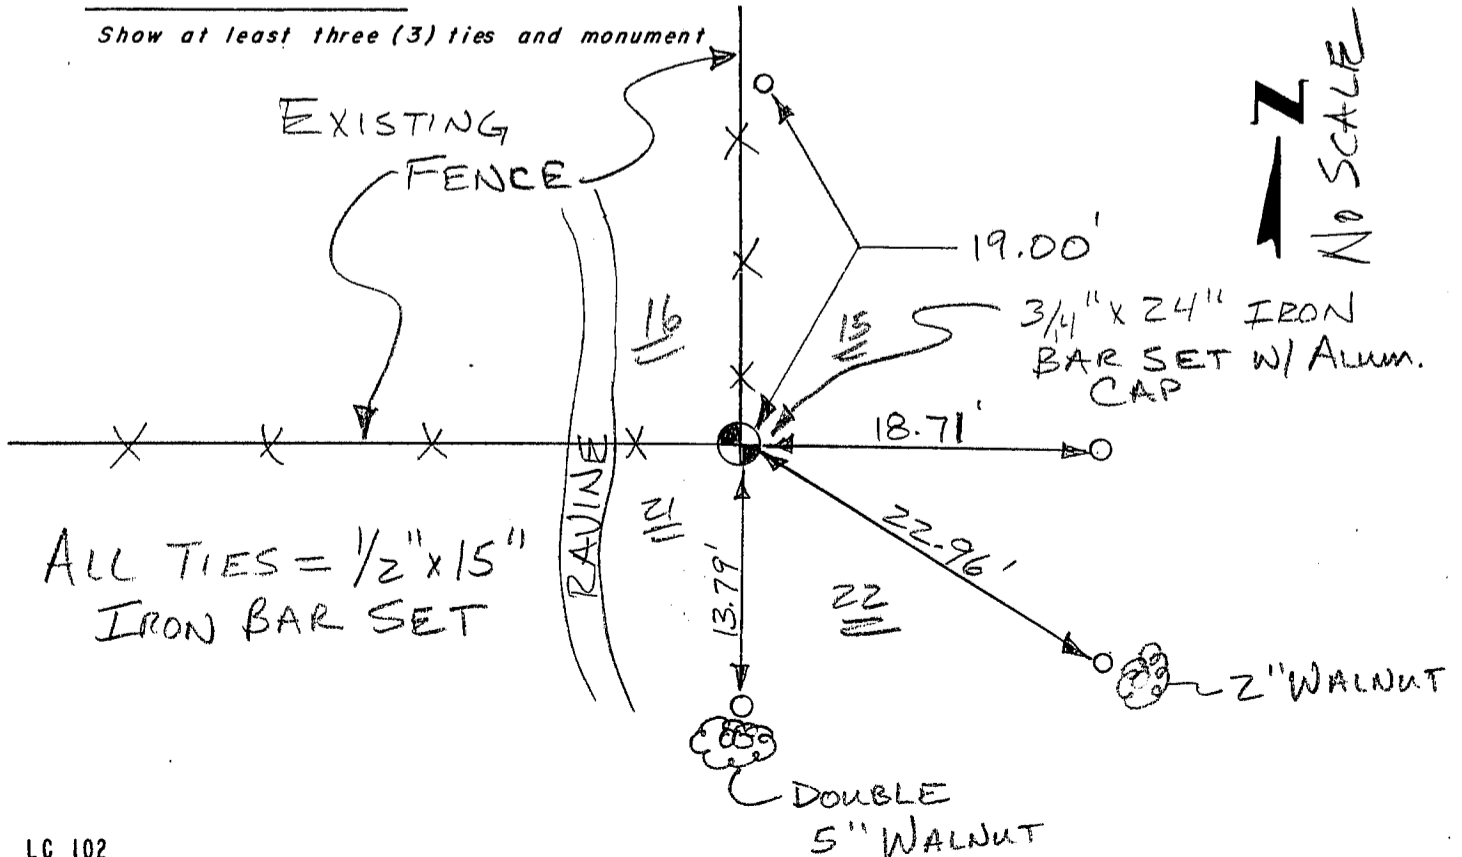 Show at least three (3) ties and monument
EXISTING
FENCE
N
NO SCALE
19.00'
16
15
3/4" x 24" IRON
BAR SET W/ ALUM.
CAP
18.71'
RAVINE
21
ALL TIES = 1/2" x 15"
IRON BAR SET
13.79'
22.96'
22
2" WALNUT
DOUBLE
5" WALNUT
LC 102